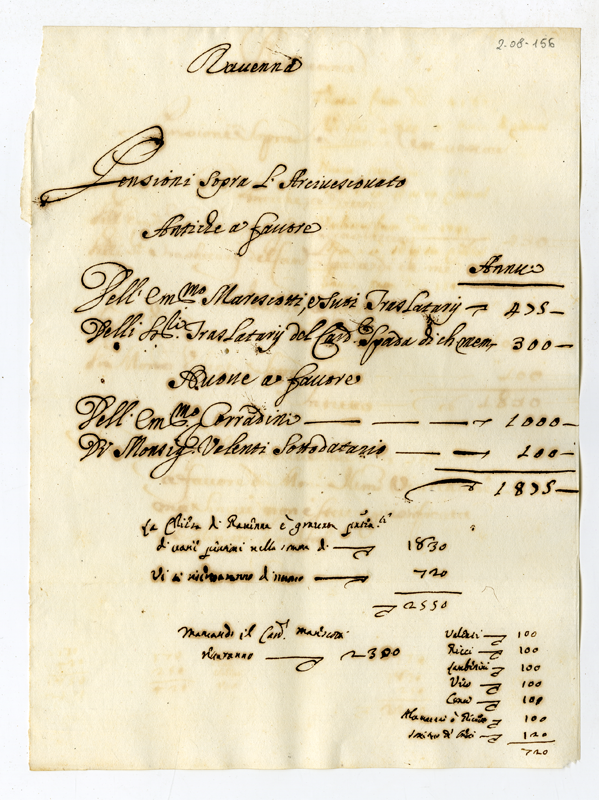 2-08-156
Ravenna
Pensioni sopra L'Arcivescovato
Antiche a favore
Annue
Dell' Em.mo Marescotti, e suoi Traslatarij 435
Delli Traslatarij del Card. Spada di ch. mem. 300
Nuove a favore
Dell' Em.mo Corradini 1000
Di Monsig. Valenti Sottodatario 100
1835
La Chiesa di Ravenna è gravata
di varie pensioni nella somma di 1830
Vi si di nuovo 720
2550
Mancando il Card. Marescotti
resteranno
Valenti 100
Ricci 100
100
100
100
100
120
720